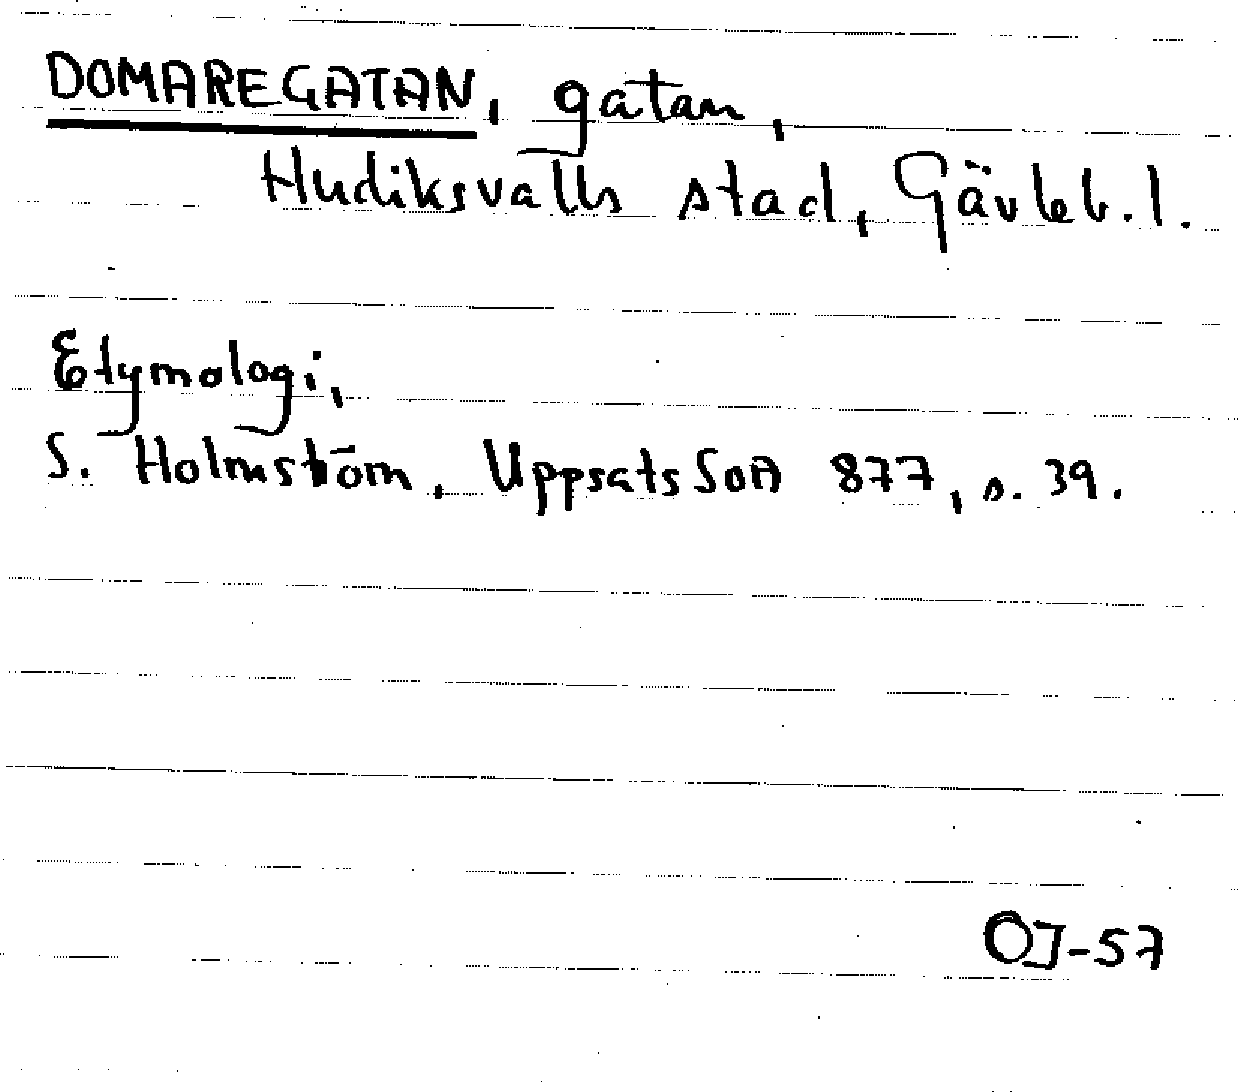 DOMAREGATAN, gatan,
Hudiksvalls stad, Gävleb. l.
Etymologi,
S. Holmström, Uppsats SOA 877, s. 39.
OJ-57